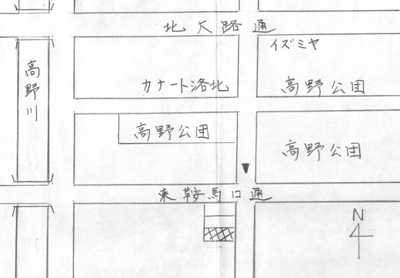 北大路通
イズミヤ
高野川
カナート洛北
高野公団
高野公団
高野公団
東鞍馬口通
N